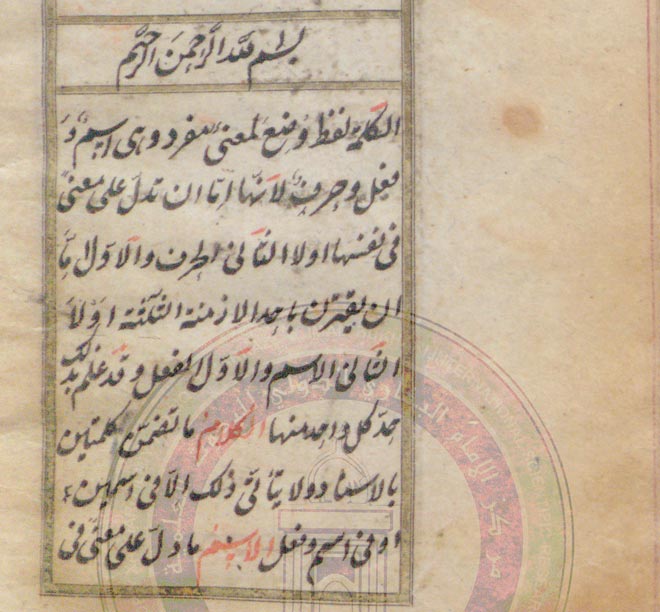 بسم الله الرحمن الرحيم
الكلمة لفظ وضع لمعنى مفرد وهى اسم و
فعل وحرف لانها اما ان تدل على معنى
فى نفسها اولا الثانى الحرف والاول اما
ان يقترن باحد الازمنة الثلثة اولا
الثانى الاسم والاول الفعل وقد علم بذلك
حد كل واحد منها الكلام ما تضمن كلمتين
بالاسناد ولا يتأتى ذلك الا فى اسمين
او فى اسم وفعل الاسم ما دل على معنى فى
مركز الإمام